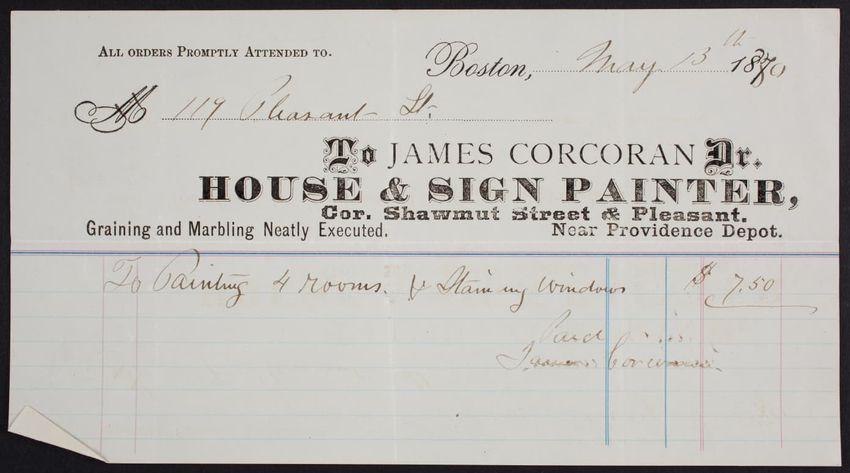 ALL ORDERS PROMPTLY ATTENDED TO.
Boston, May 13th 1870
M 119 Pleasant St.
To JAMES CORCORAN Dr.
HOUSE & SIGN PAINTER,
Cor. Shawmut Street & Pleasant.
Graining and Marbling Neatly Executed. Near Providence Depot.
To Painting 4 rooms. & Staining Windows $ 7.50
Paid
James Corcoran